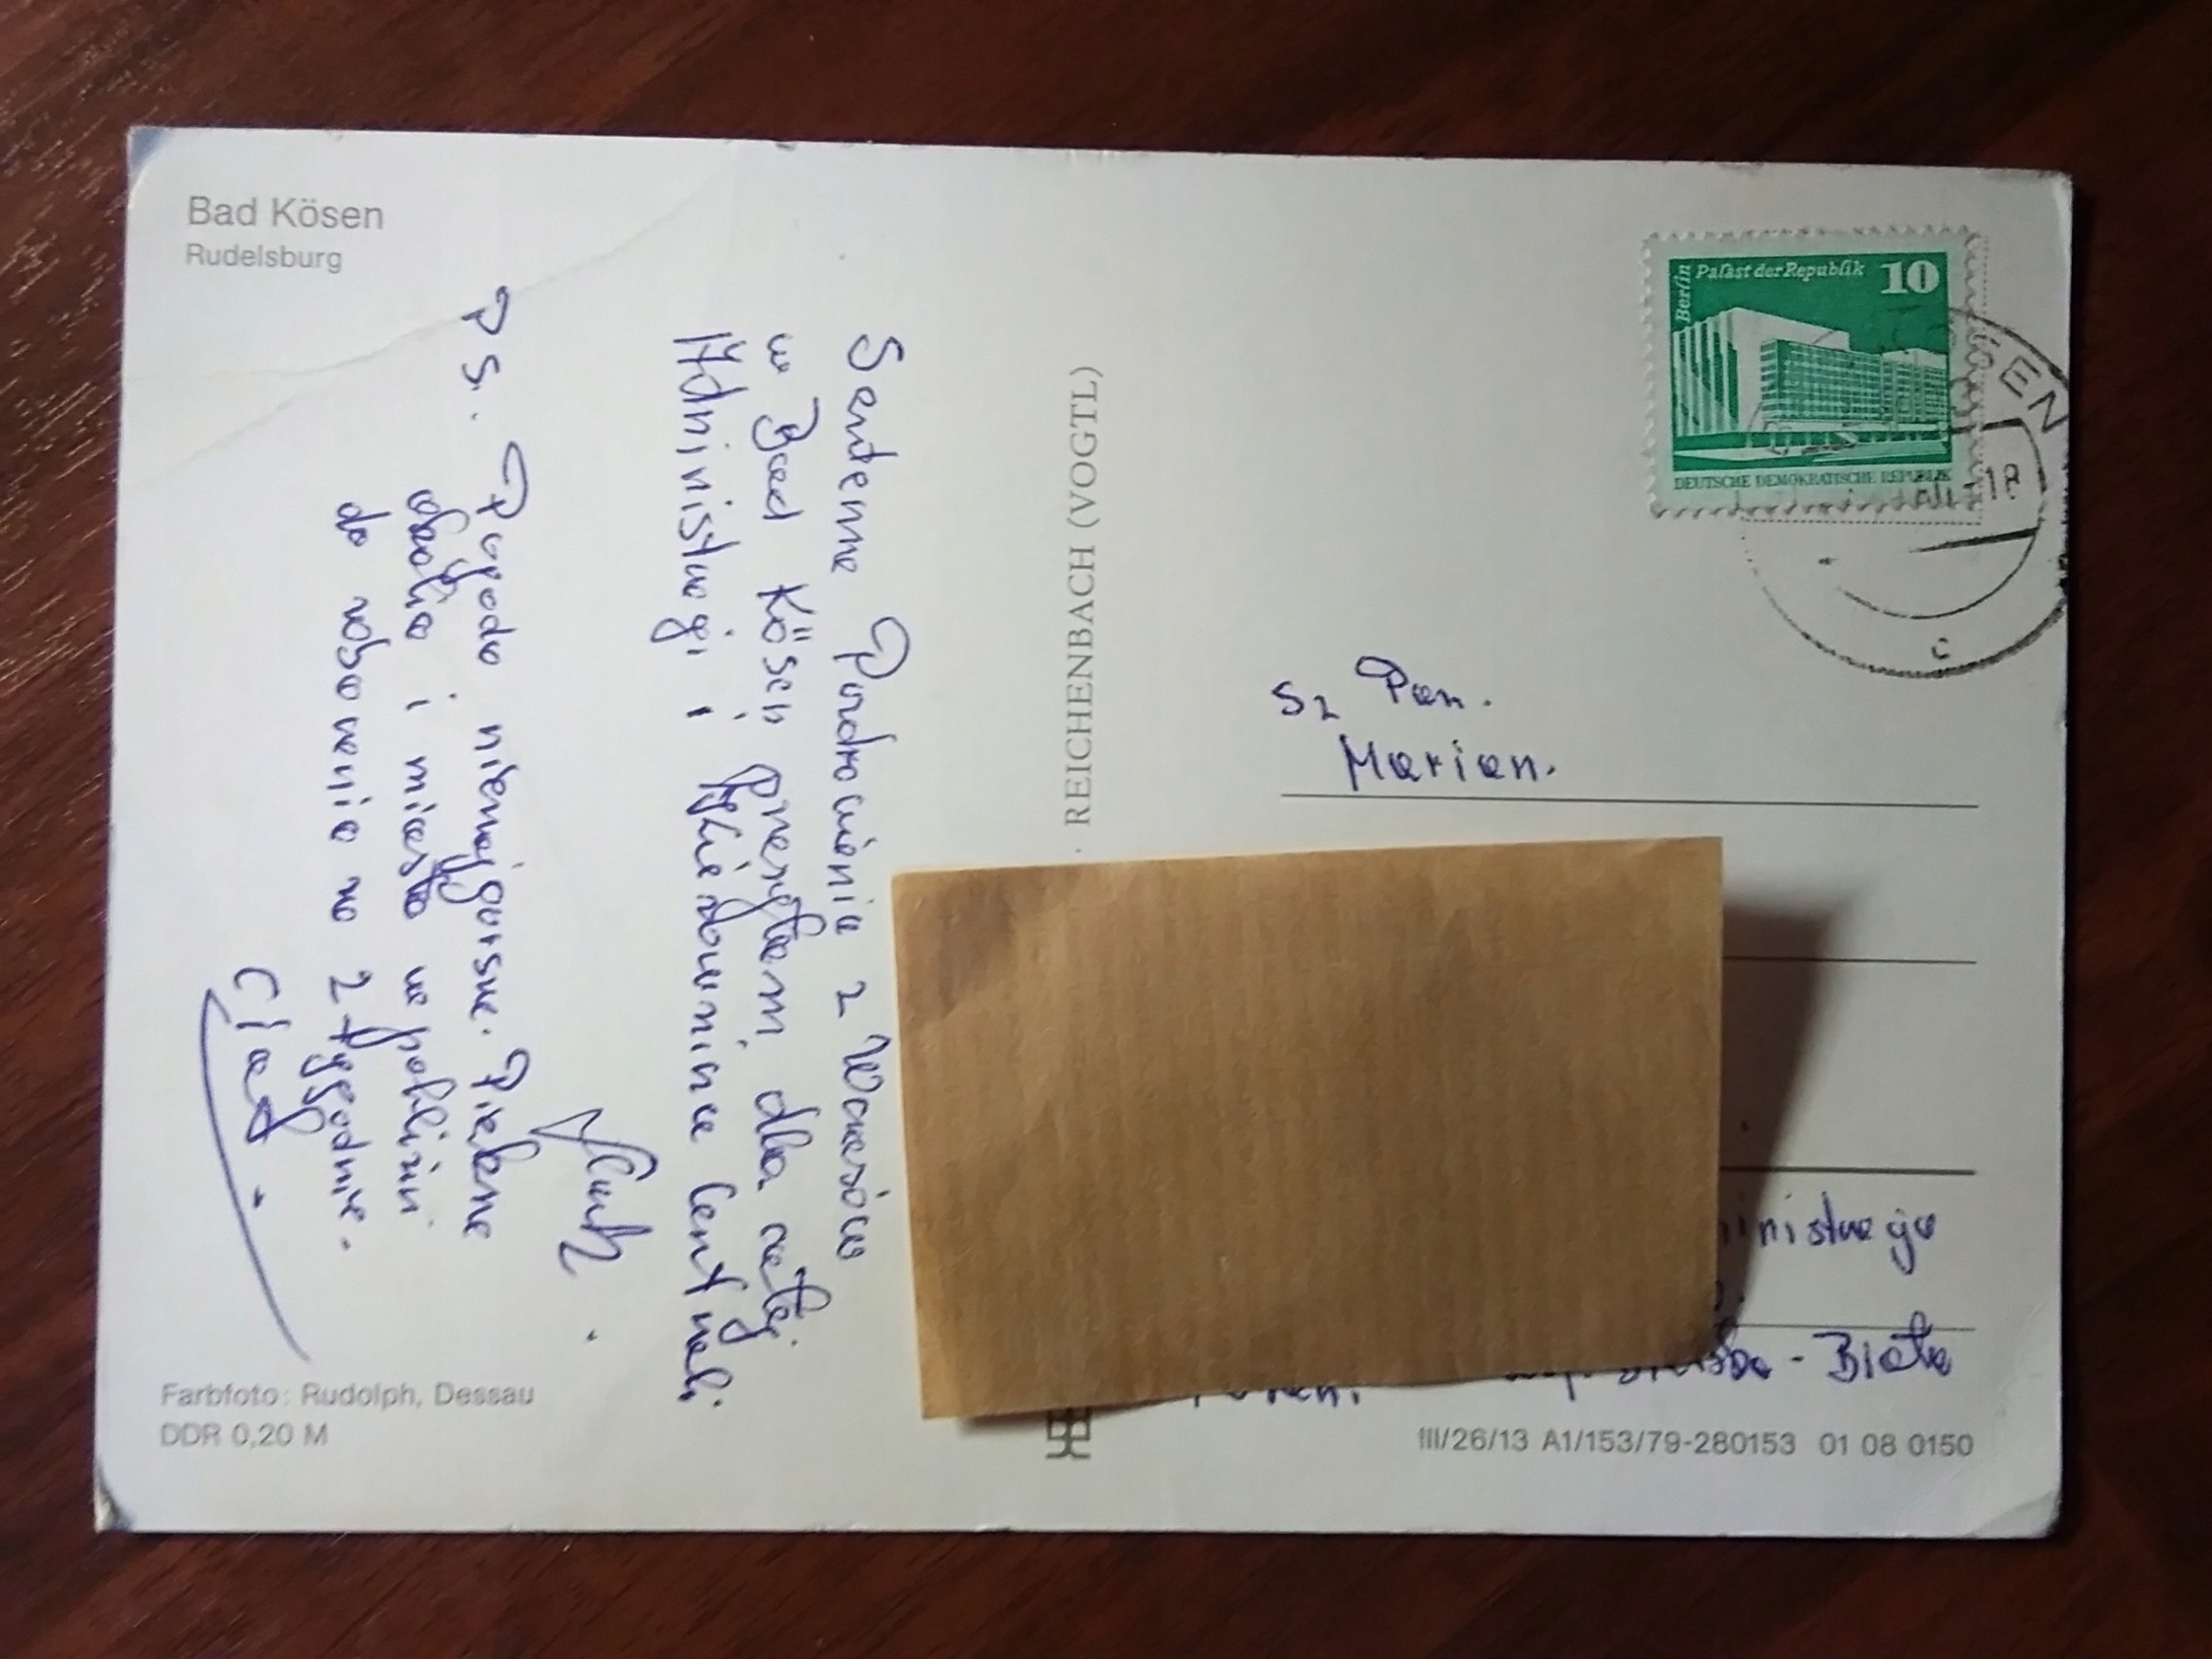 Bad Kösen
Rudelsburg
Serdeczne Pozdrowienia z Wczasów
w Bad Kösen przesyłam dla całej
Administracji i Kierownictwa Centrali.
PS. Pogoda nienajgorsza. Piękne
okolice i miasto w pobliżu
do 2 tygodnie.
REICHENBACH (VOGTL)
Berlin
Palast der Republik 10
DEUTSCHE DEMOKRATISCHE REPUBLIK
18
c
Sz Pan.
Marian.
Biała
Farbfoto: Rudolph, Dessau
DDR 0,20 M
III/26/13 A1/153/79-280153 01 08 0150